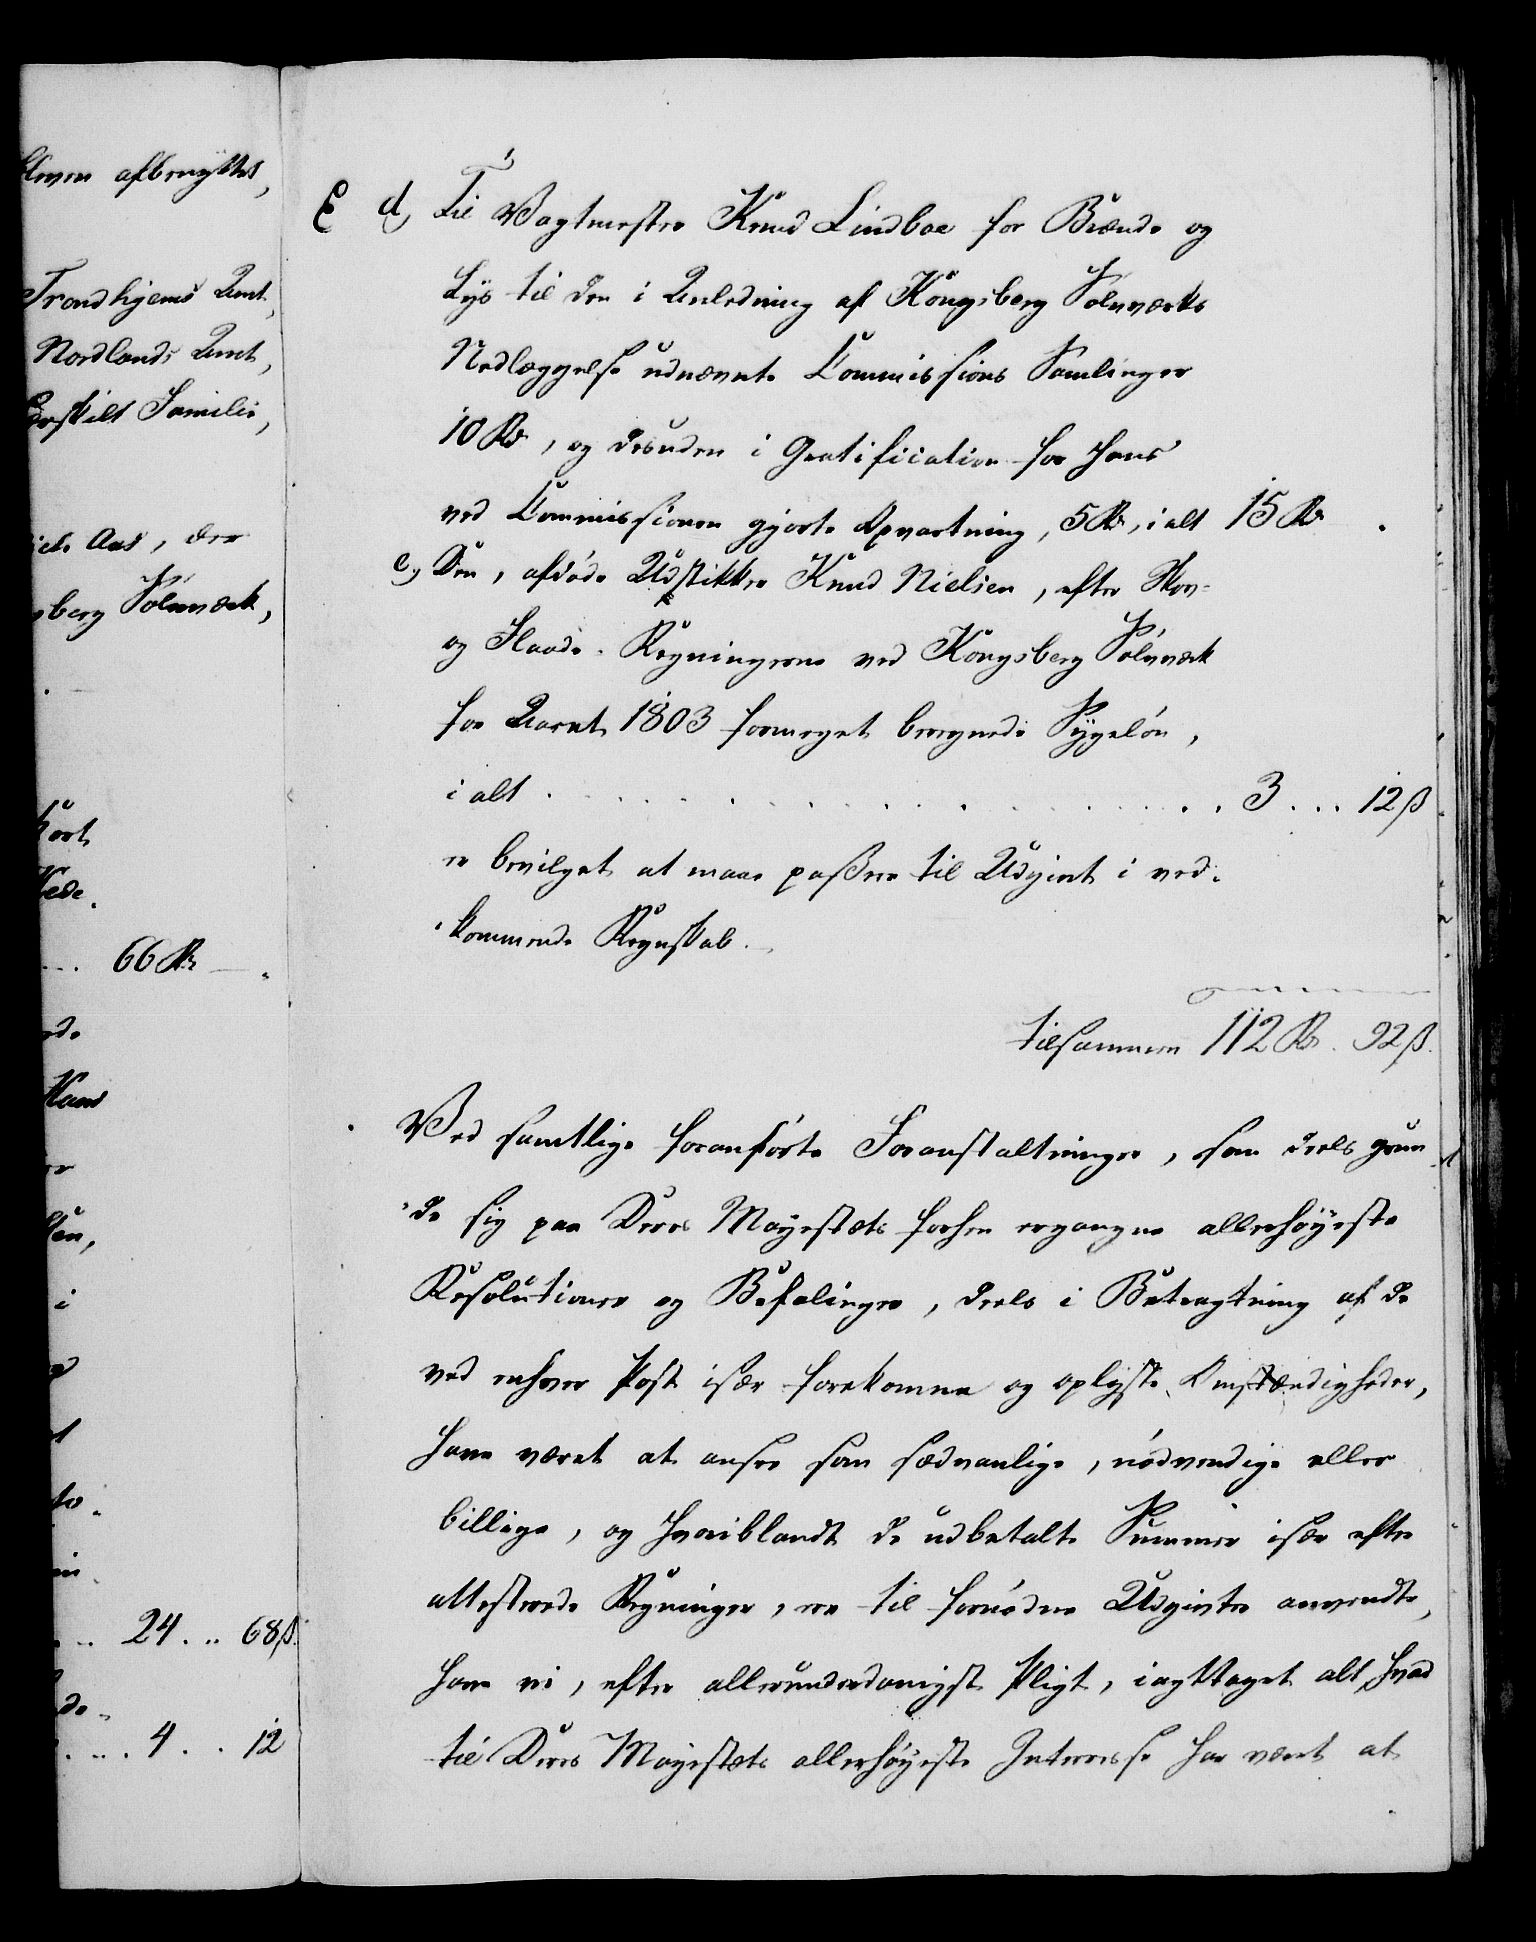 leven afbenyttet,
Trondhjems Amt,
Nordlands Amt,
Særskilt Familie,
Aas, der
sberg Sølvværk,
66 Rd
24 .. 68 ß.
4 .. 12
d, Til Vagtmester Knud Lindboe for Brænde og
Lys til den i Anledning af Kongsberg Sølvværks
Nedlæggelse udnævnte Commissions Samlinger
10 Rd, og desuden i Gratification for hans
ved Commissionen gjorte Opvartning, 5 Rd, i alt 15 Rd
e, Den, afdøde Udstikker Knud Nielsen, efter Skov-
og Flaade-Regningerne ved Kongsberg Sølvværk
for Aaret 1803 formeget beregnede Sygeløn,
i alt . . . . . . . . . . . . 3 ... 12 ß
er bevilget at maae passere til Udgivt i ved-
kommende Regnskab.
tilsammen 112 Rd. 92 ß.
Ved samtlige foranførte Foranstaltninger, som deels grun-
de sig paa Deres Mayestæts forhen ergangne allerhøyeste
Resolutioner og Befalinger, deels i Betragtning af de
ved enhver Post især forekomne og oplyste Omstændigheder,
have været at ansee som sædvanlige, nødvendige eller
billige, og hvoriblandt de udbetalte Summer især efter
attesterede Regninger, ere til fornødne Udgivter anvendte,
have vi, efter allerunderdanigst Pligt, iagttaget alt, hvad
til Deres Mayestæts allerhøyeste Interesse har været at